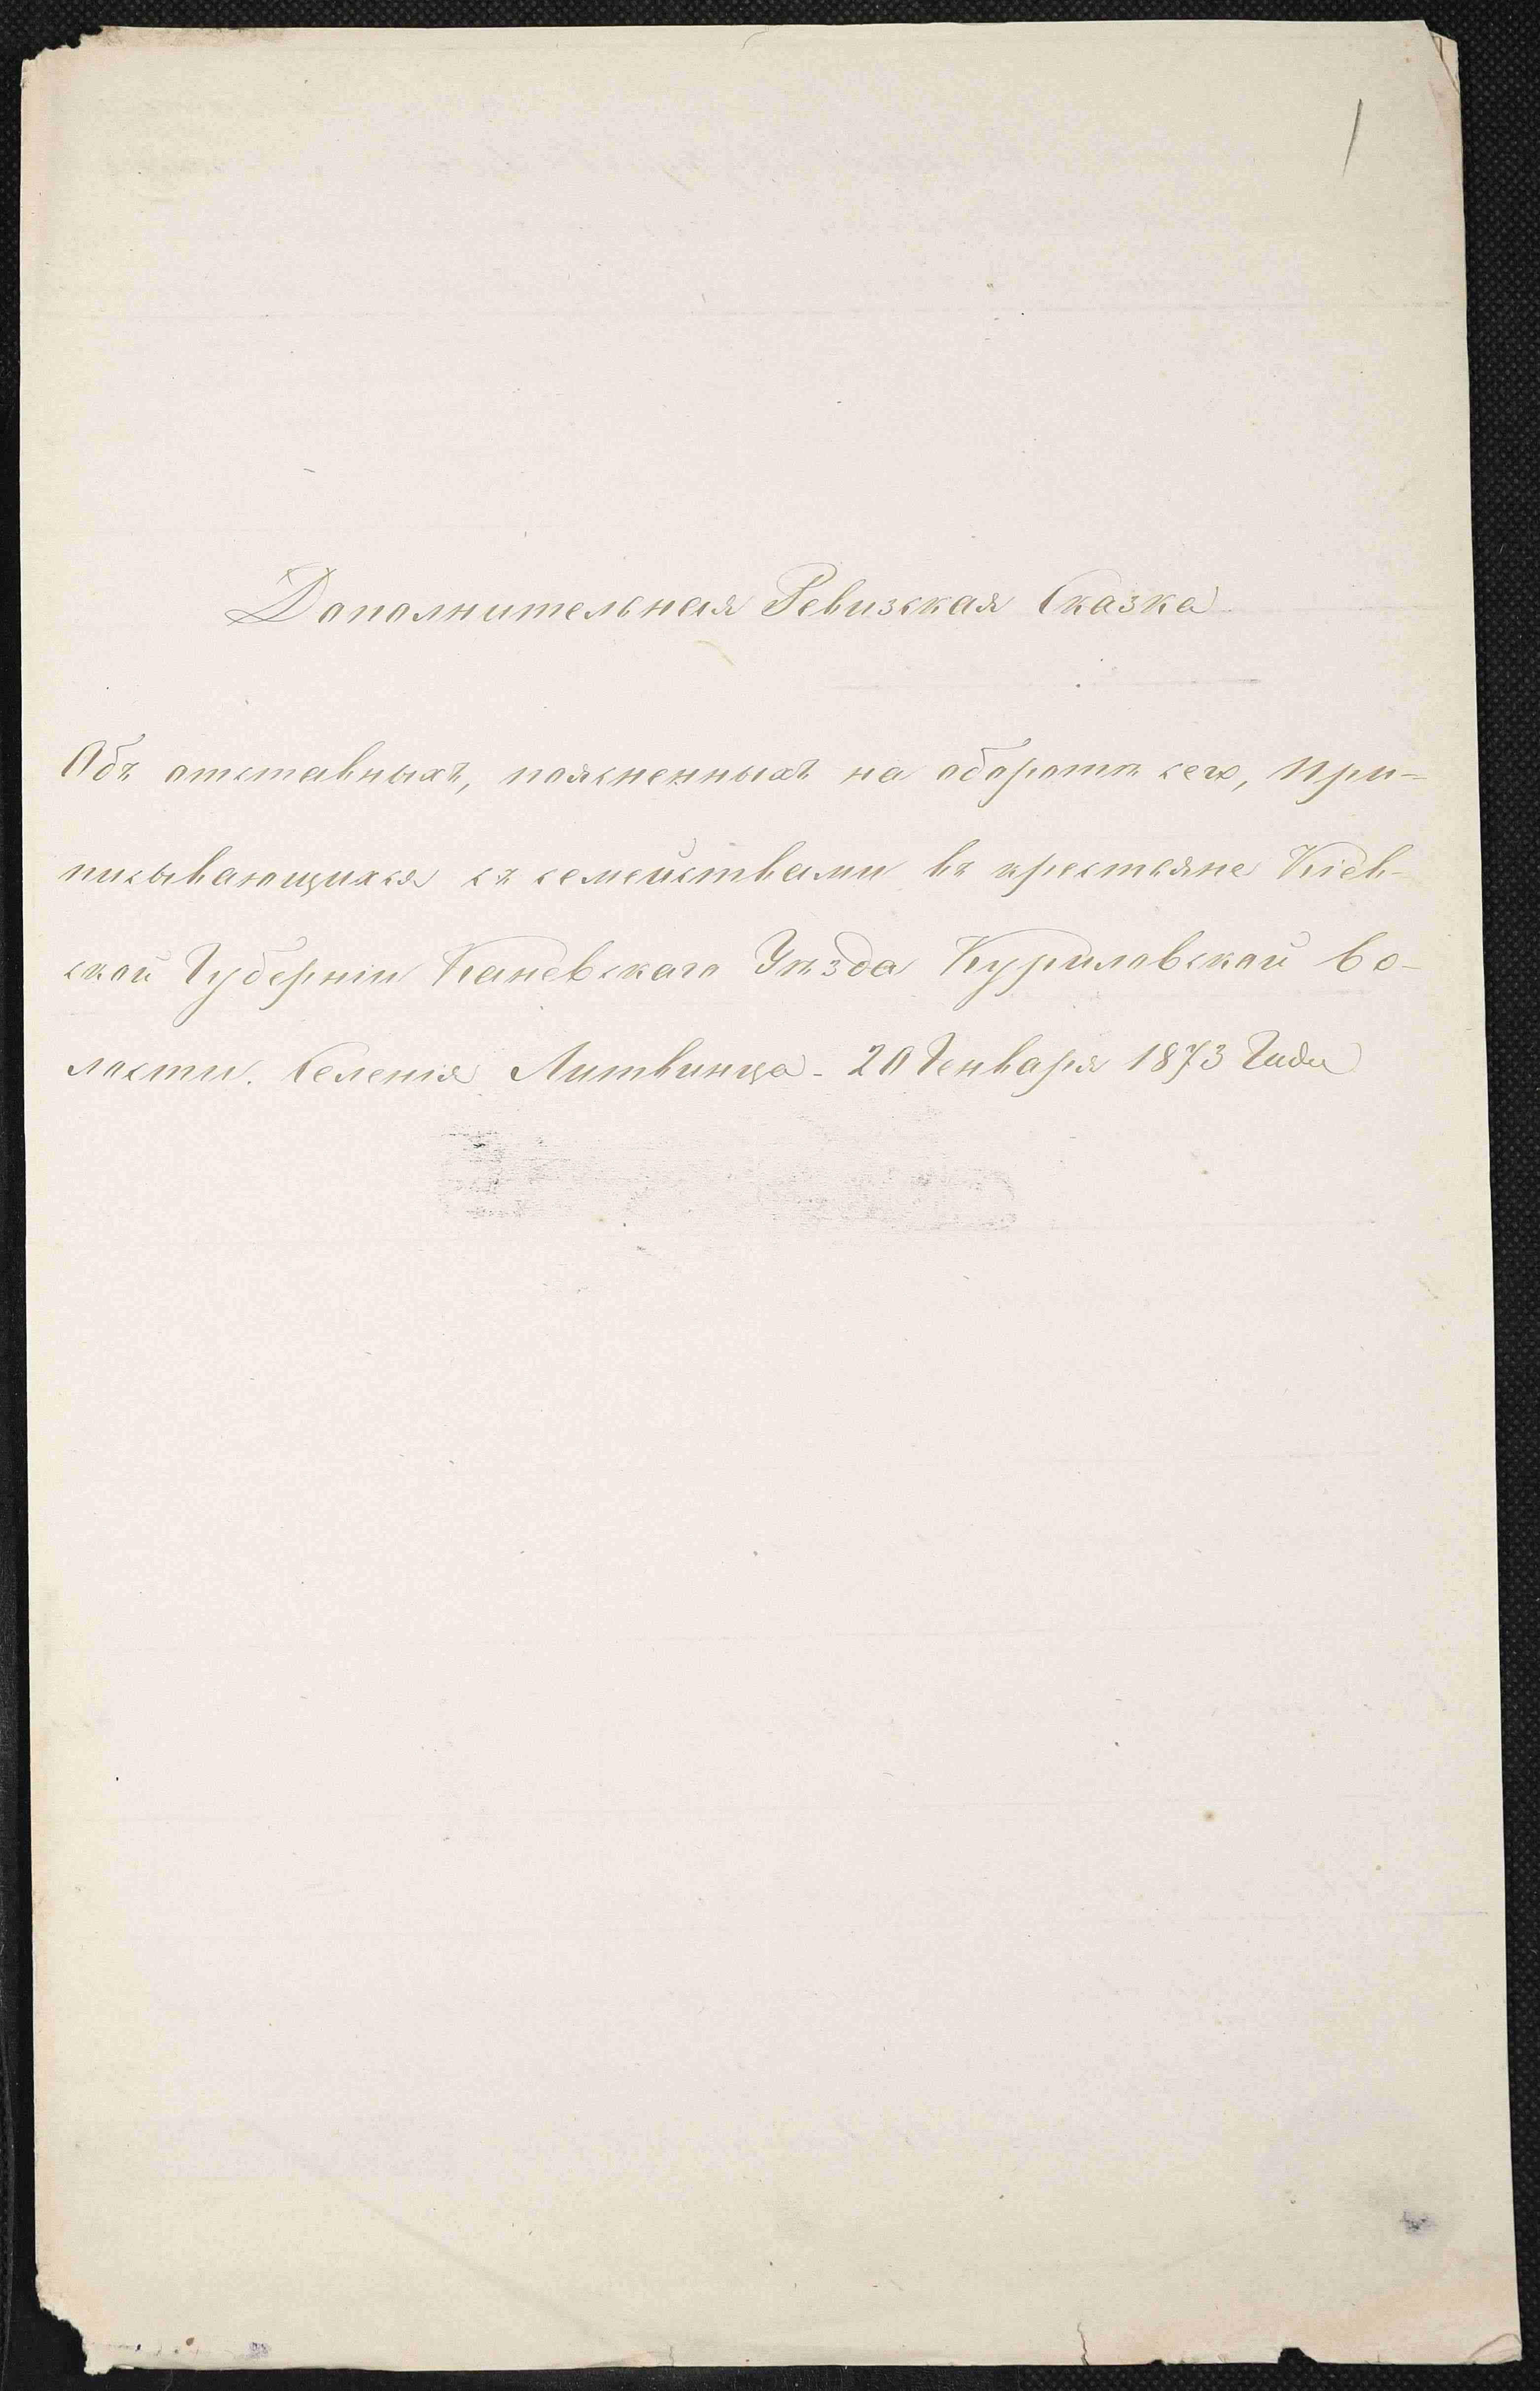 1
Дополнительная Ревизская Сказка
Объ отставныхъ, поясненныхъ на оборотѣ сего, при-
писывающихся съ семействами въ крестьяне Кіев-
ской Губерніи Каневскаго Уѣзда Куриловской во-
лости. Селенія Литвинца - 20 Генваря 1873 Года